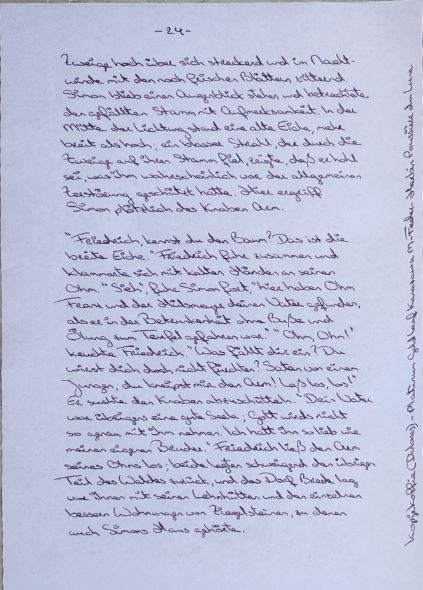 -24-
Zweige hoch über sich streckend und im Nacht-
winde mit den noch frischen Blättern zitternd.
Simon blieb einen Augenblick stehen und betrachtete
den gefällten Stamm mit Aufmerksamkeit. In der
Mitte der Lichtung stand eine alte Eiche, mehr
breit als hoch; ein blasser Strahl, der durch die
Zweige auf ihren Stamm fiel, zeigte, daß er hohl
sei, was ihn wahrscheinlich vor der allgemeinen
Zerstörung geschützt hatte. Hier ergriff
Simon plötzlich des Knaben Arm.
"Friedrich, kennst du den Baum? Das ist die
breite Eiche." Friedrich fuhr zusammen und
klammerte sich mit kalten Händen an seinen
Ohm. "Sieh", fuhr Simon fort, "hier haben Ohm
Franz und der Hülsmeyer deinen Vater gefunden,
als er in der Betrunkenheit ohne Buße und
Ölung zum Teufel gefahren war." "Ohm, Ohm!"
keuchte Friedrich. "Was fällt dir ein? Du
wirst dich doch nicht fürchten? Satan von einem
Jungen, du kneipst mir den Arm! Laß los, los!"
Er suchte den Knaben abzuschütteln. "Dein Vater
war übrigens eine gute Seele; Gott wirds nicht
so genau mit ihm nehmen. Ich hatt ihn so lieb wie
meinen eigenen Bruder." Friedrich ließ den Arm
seines Ohms los; beide legten schweigend den übrigen
Teil des Waldes zurück, und das Dorf Brede lag
vor ihnen mit seinen Lehmhütten und den einzelnen
bessern Wohnungen von Ziegelsteinen, zu denen
auch Simons Haus gehörte.
Kopjskoffie (Dolores) - Platinum Gold Leaf Kanazawa M-Feder Herbin Poussière de Lune